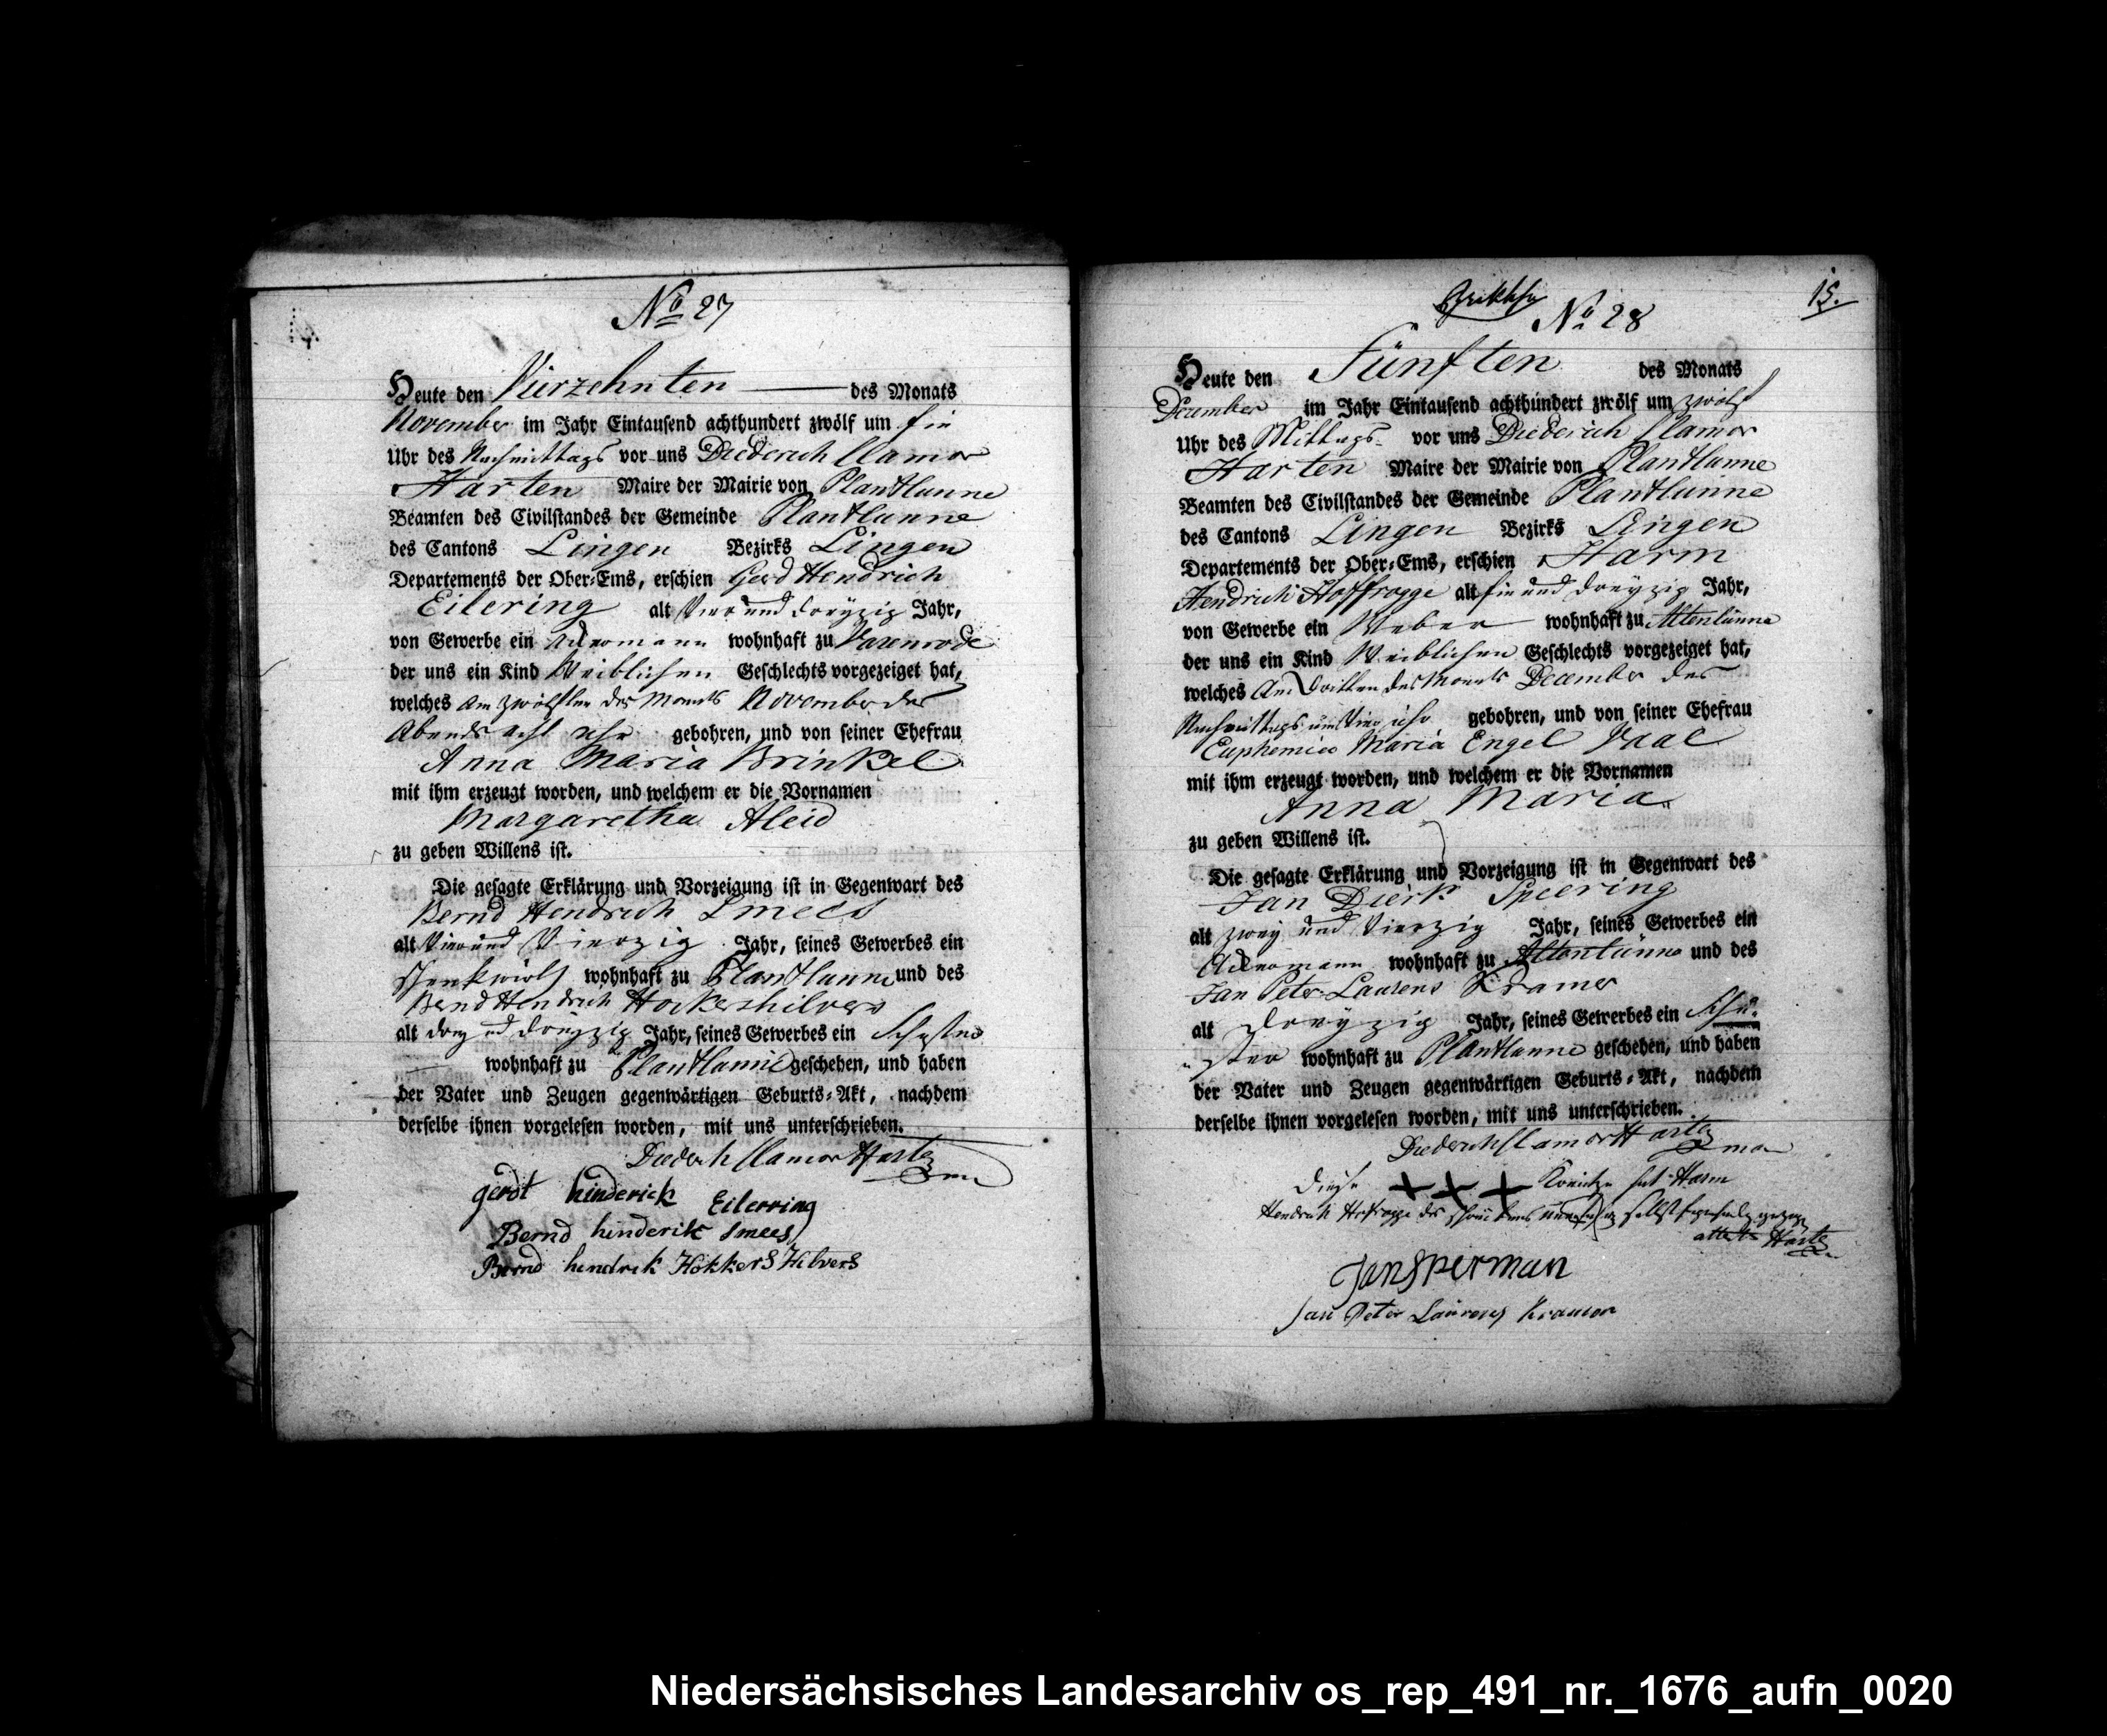 No 27
Heute den Vierzehnten des Monats
November im Jahr Eintausend achthundert zwölf um ein
Uhr des Nachmittags vor uns Diederich Clamor
Harten Maire der Mairie von Plantlünne
Beamten des Civilstandes der Gemeinde Plantlünne
des Cantons Lingen Bezirks Lingen
Departements der Ober-Ems, erschien Gerd Hendrich
Eilering alt Vier und dreyzig Jahr,
von Gewerbe ein Ackermann wohnhaft zu Varenrode
der uns ein Kind Weiblichen Geschlechts vorgezeiget hat,
welches am zwölften des Monats November des
Abends acht uhr gebohren, und von seiner Ehefrau
Anna Maria Brinkel
mit ihm erzeugt worden, und welchem er die Vornamen
Margaretha Aleid
zu geben Willens ist.
Die gesagte Erklärung und Vorzeigung ist in Gegenwart des
Bernd Hendrich Smees
alt Vier und Vierzig Jahr, seines Gewerbes ein
Schenkwirth wohnhaft zu Plantlünne und des
Bernd Hendrich Hockershilvers
alt drey und dreyzig Jahr, seines Gewerbes ein Schuster
wohnhaft zu Plantlünne geschehen, und haben
der Vater und Zeugen gegenwärtigen Geburts-Akt, nachdem
derselbe ihnen vorgelesen worden, mit uns unterschrieben.
Diederich Clamor Harten
gerdt hinderick Eilerring
Bernd hinderik Smees
Bernd hendrik Hökkers Hilvers
15.
No 28
Heute den Fünften des Monats
December im Jahr Eintausend achthundert zwölf um zwölf
Uhr des Mittags vor uns Diederich Clamor
Harten Maire der Mairie von Plantlünne
Beamten des Civilstandes der Gemeinde Plantlünne
des Cantons Lingen Bezirks Lingen
Departements der Ober-Ems, erschien Harm
Hendrich Hoffrogge alt ein und dreyzig Jahr,
von Gewerbe ein Weber wohnhaft zu Altenlünne
der uns ein Kind Weiblichen Geschlechts vorgezeiget hat,
welches Am Dritten des Monats December des
Nachmittags um Vier uhr gebohren, und von seiner Ehefrau
Euphemia Maria Engel Vaal
mit ihm erzeugt worden, und welchem er die Vornamen
Anna Maria
zu geben Willens ist.
Die gesagte Erklärung und Vorzeigung ist in Gegenwart des
Jan Dierk Speering
alt zwey und Vierzig Jahr, seines Gewerbes ein
Ackermann wohnhaft zu Altenlünne und des
Jan Peter Laurens Kramer
alt Dreyzig Jahr, seines Gewerbes ein Schu-
ster wohnhaft zu Plantlünne geschehen, und haben
der Vater und Zeugen gegenwärtigen Geburts-Akt, nachdem
derselbe ihnen vorgelesen worden, mit uns unterschrieben.
Diederich Clamor Harten
Diese +++ Kreutze hat Harm
Hendrich Hofrogge des schreibens selbst
attest Harten
Jan Sperman
Jan Peter Laurens Kramer
Niedersächsisches Landesarchiv os_rep_491_nr._1676_aufn_0020